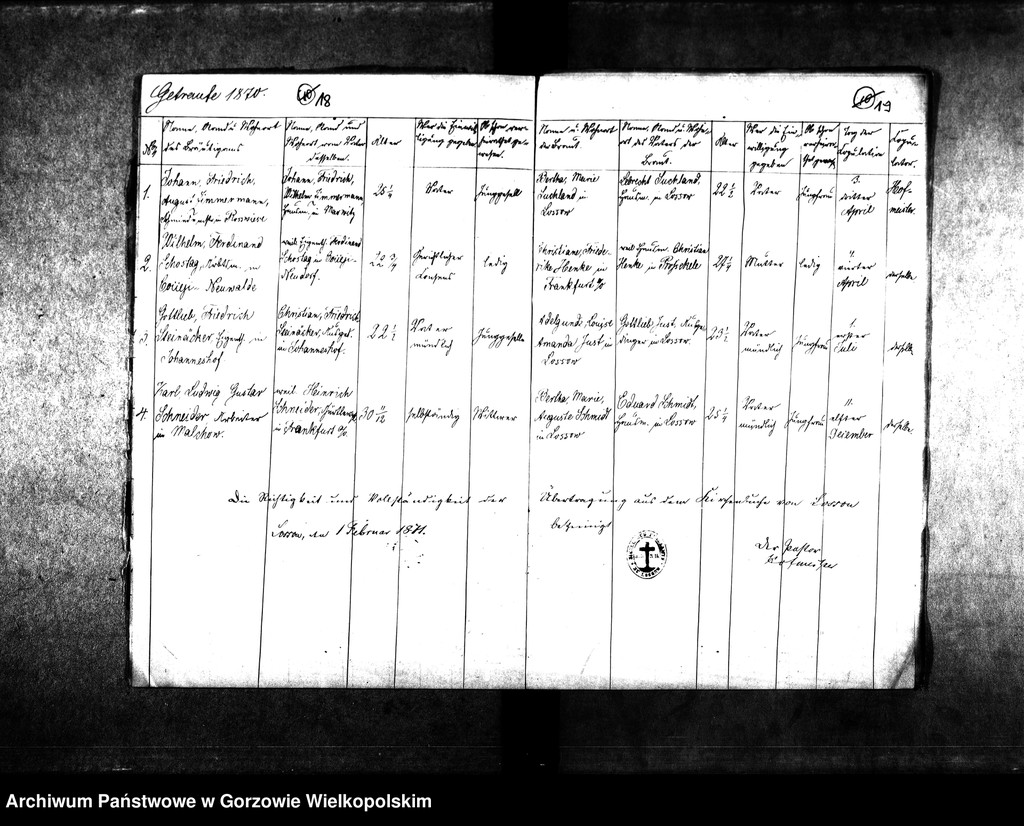 Getraute 1870.
10 18
10 19
No
Name, Stand u. Wohnort
des Bräutigams
Name, Stand und
Wohnort vom Vater
desselben.
Alter
Wer die Einwil-
ligung gegeben
Ob schon ver-
heirathet ge-
wesen.
Name u. Wohnort
der Braut.
Name, Stand u. Wohn-
ort des Vaters der
Braut.
Alter
Wer die Ein-
willigung
gegeben
Ob schon
Tag der
Copulation
Copu-
lator.
1.
Johann, Friedrich,
August Zimmermann,
in
Johann, Friedrich,
Wilhelm Zimmermann
in
25 1/4
Vater
Junggesell
Bertha, Marie
Suckland in
Lossow
Suckland,
in Lossow
22 1/2
Vater
Jungfrau
3.
dritter
April
Hof-
meister.
2.
Wilhelm, Ferdinand
Schostag, in
Neuwalde
weil. Eigenth. Ferdinand
Schostag in
Neudorf.
22 3/4
Gerichtlicher
Consens
ledig
Christiane, Friede-
rike Henke in
Frankfurt a/O
weil. Christian
Henke in
27 1/4
Mutter
ledig
4.
vierter
April
derselbe
3.
Gottlieb, Friedrich
Steinäcker, Eigenth. in
Johanneshof
Christian, Friedrich
Steinäcker,
in Johanneshof.
22 1/2
Vater
mündlich
Junggeselle
Adelgunde, Louise
Amanda Just in
Lossow
Gottlieb, Just,
in Lossow.
23 1/2
Vater
mündlich
Jungfrau
1.
erster
Juli
derselbe
4.
Karl, Ludwig Gustav
Schneider Arbeiter
in Malchow.
weil. Heinrich
Schneider,
in Frankfurt a/O.
30 11/12
selbständig
Wittwer
Bertha, Marie,
Auguste Schmidt
in Lossow
Eduard Schmidt,
in Lossow
25 1/4
Vater
mündlich
Jungfrau
11.
elfter
Dezember
derselbe
Die Richtigkeit und Vollständigkeit der Übertragung aus dem Kirchenbuche von Lossow
bescheinigt
Lossow, den 1 Februar 1871.
Der Pastor
Hofmeister
Archiwum Państwowe w Gorzowie Wielkopolskim